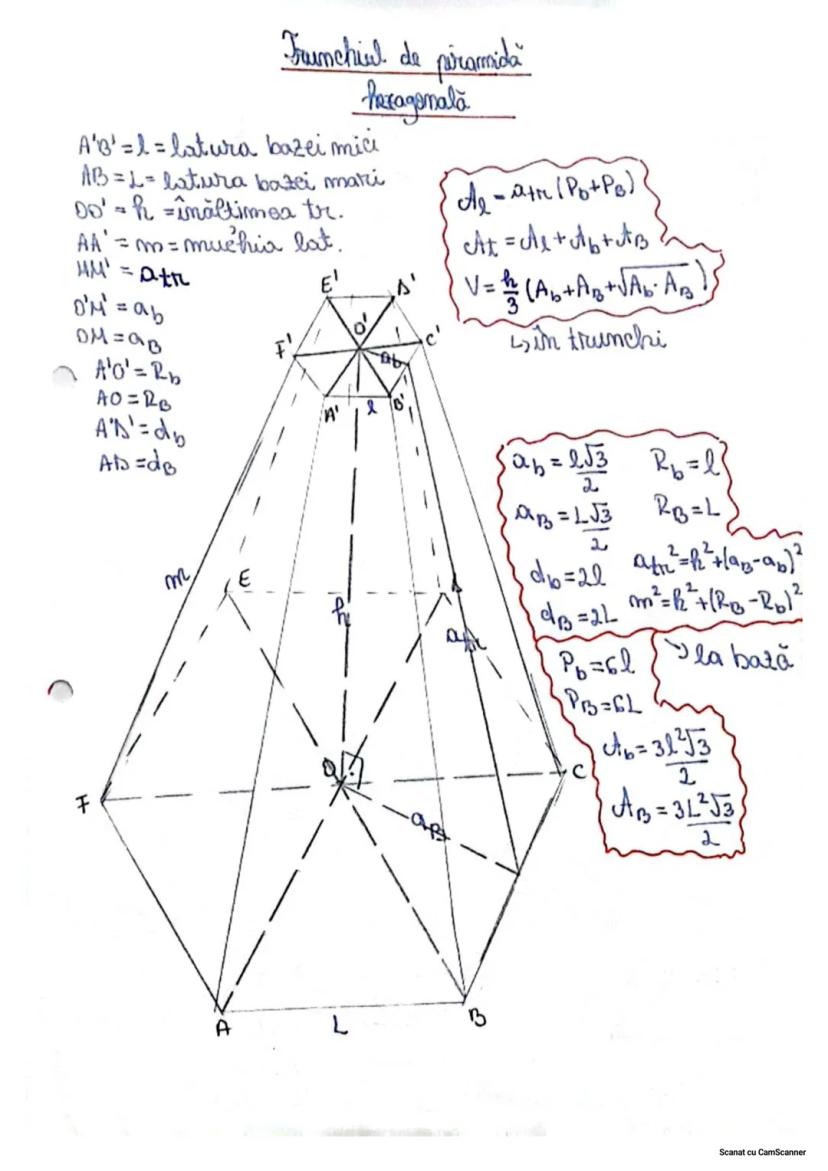 Trunchiul de piramidă
hexagonală
A'B' = l = latura bazei mici
AB = L = latura bazei mari
OO' = h = înălțimea tr.
AA' = m = muchia lat.
MM' = atr
O'M' = ab
OM = aB
A'O' = Rb
AO = RB
A'D' = db
AD = dB
Al = atr (Pb+PB)
At = Al + Ab + AB
V = h/3 (Ab+AB+√Ab·AB)
↳ în trunchi
E' D'
O'
F' C'
ab
A' l B'
ab = l√3/2 Rb = l
aB = L√3/2 RB = L
db = 2l atr² = h²+(aB-ab)²
dB = 2L m² = h²+(RB-Rb)²
↘ la bază
Pb = 6l
PB = 6L
Ab = 3l²√3/2
AB = 3L²√3/2
m
E D
h
atr
O
F C
aB
A L B
Scanat cu CamScanner